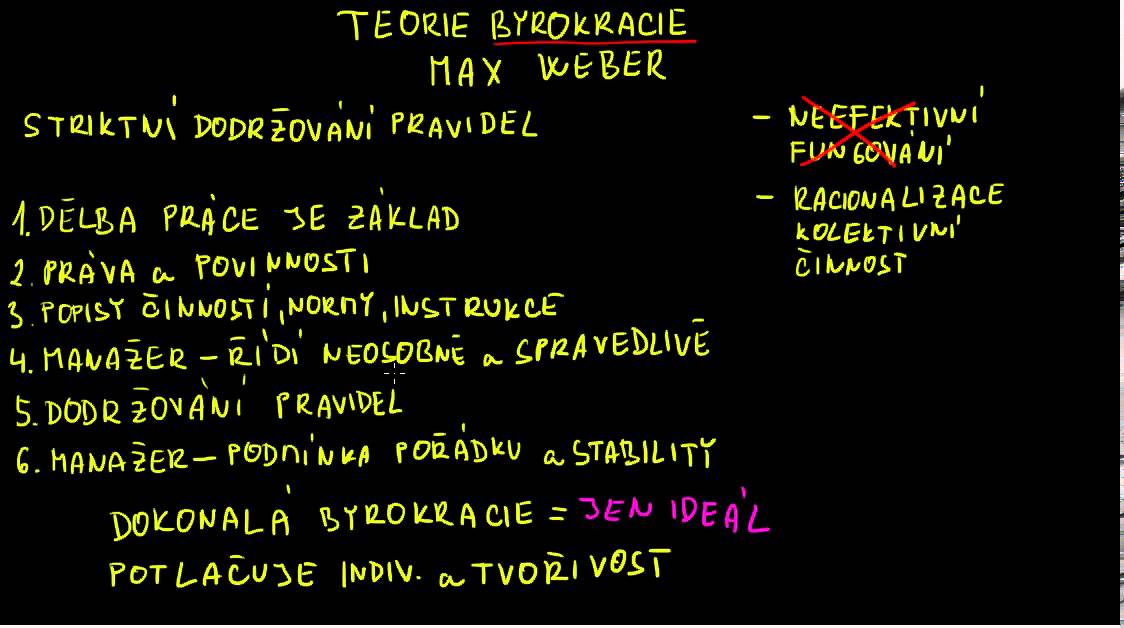 TEORIE BYROKRACIE
MAX WEBER
STRIKTNÍ DODRŽOVÁNÍ PRAVIDEL
- NEEFEKTIVNÍ
FUNGOVÁNÍ
- RACIONALIZACE
KOLEKTIVNÍ
ČINNOST
1. DĚLBA PRÁCE JE ZÁKLAD
2. PRÁVA a POVINNOSTI
3. POPISY ČINNOSTÍ, NORMY, INSTRUKCE
4. MANAŽER - ŘÍDÍ NEOSOBNĚ a SPRAVEDLIVĚ
5. DODRŽOVÁNÍ PRAVIDEL
6. MANAŽER - PODMÍNKA POŘÁDKU a STABILITY
DOKONALÁ BYROKRACIE = JEN IDEÁL
POTLAČUJE INDIV. a TVOŘIVOST